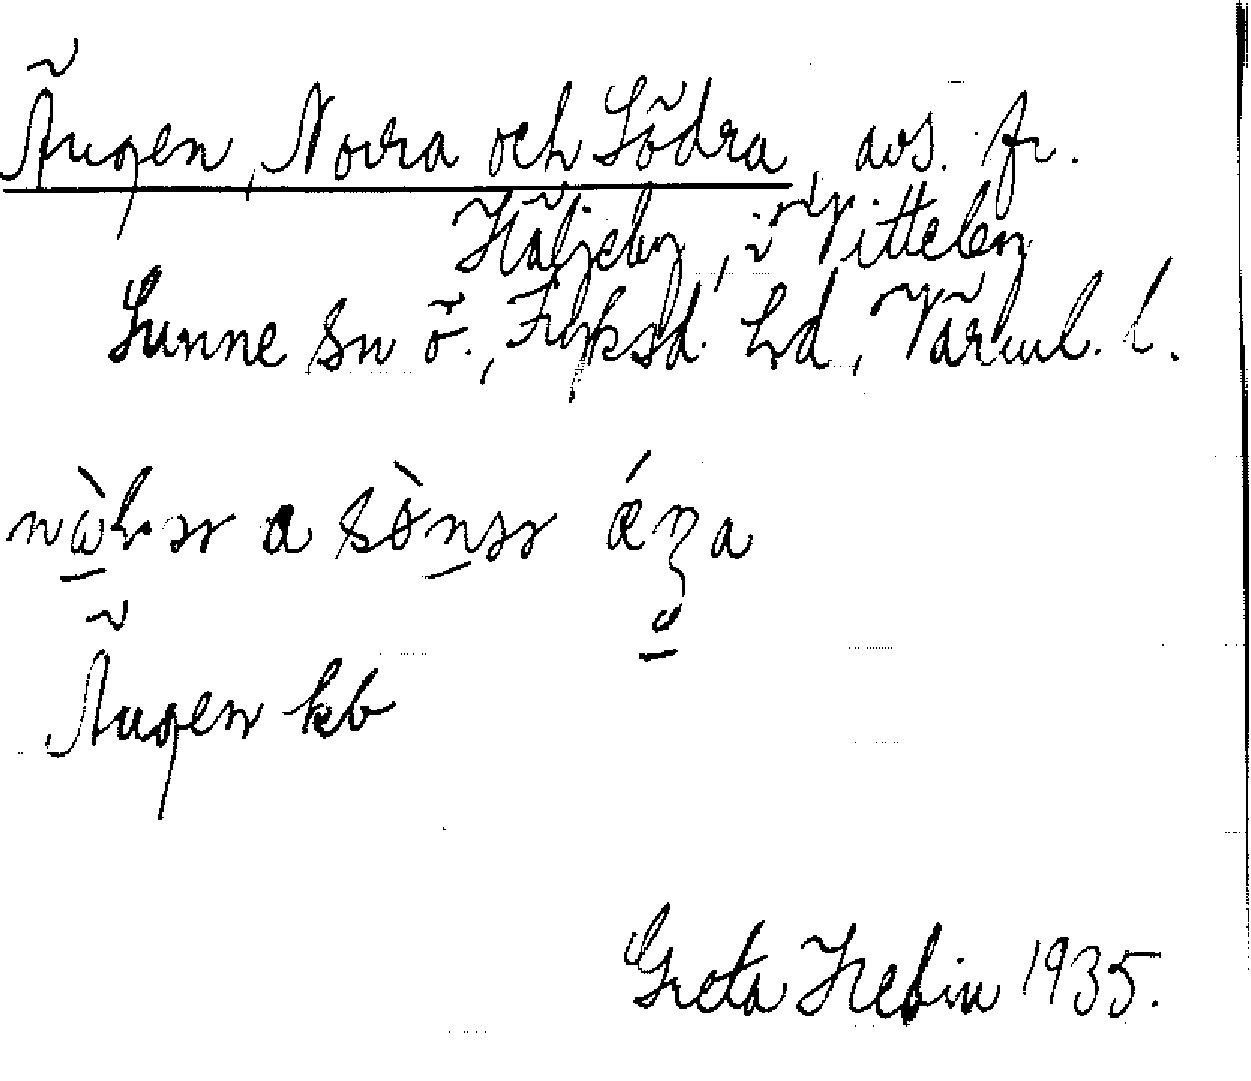 Ängen, Norra och Södra, avs. fr.
Häljeby, i Vitteby
Sunne sn ö., Fryksd. hd, Värml. l.
a
Ängen kb
Greta Hedin 1935.